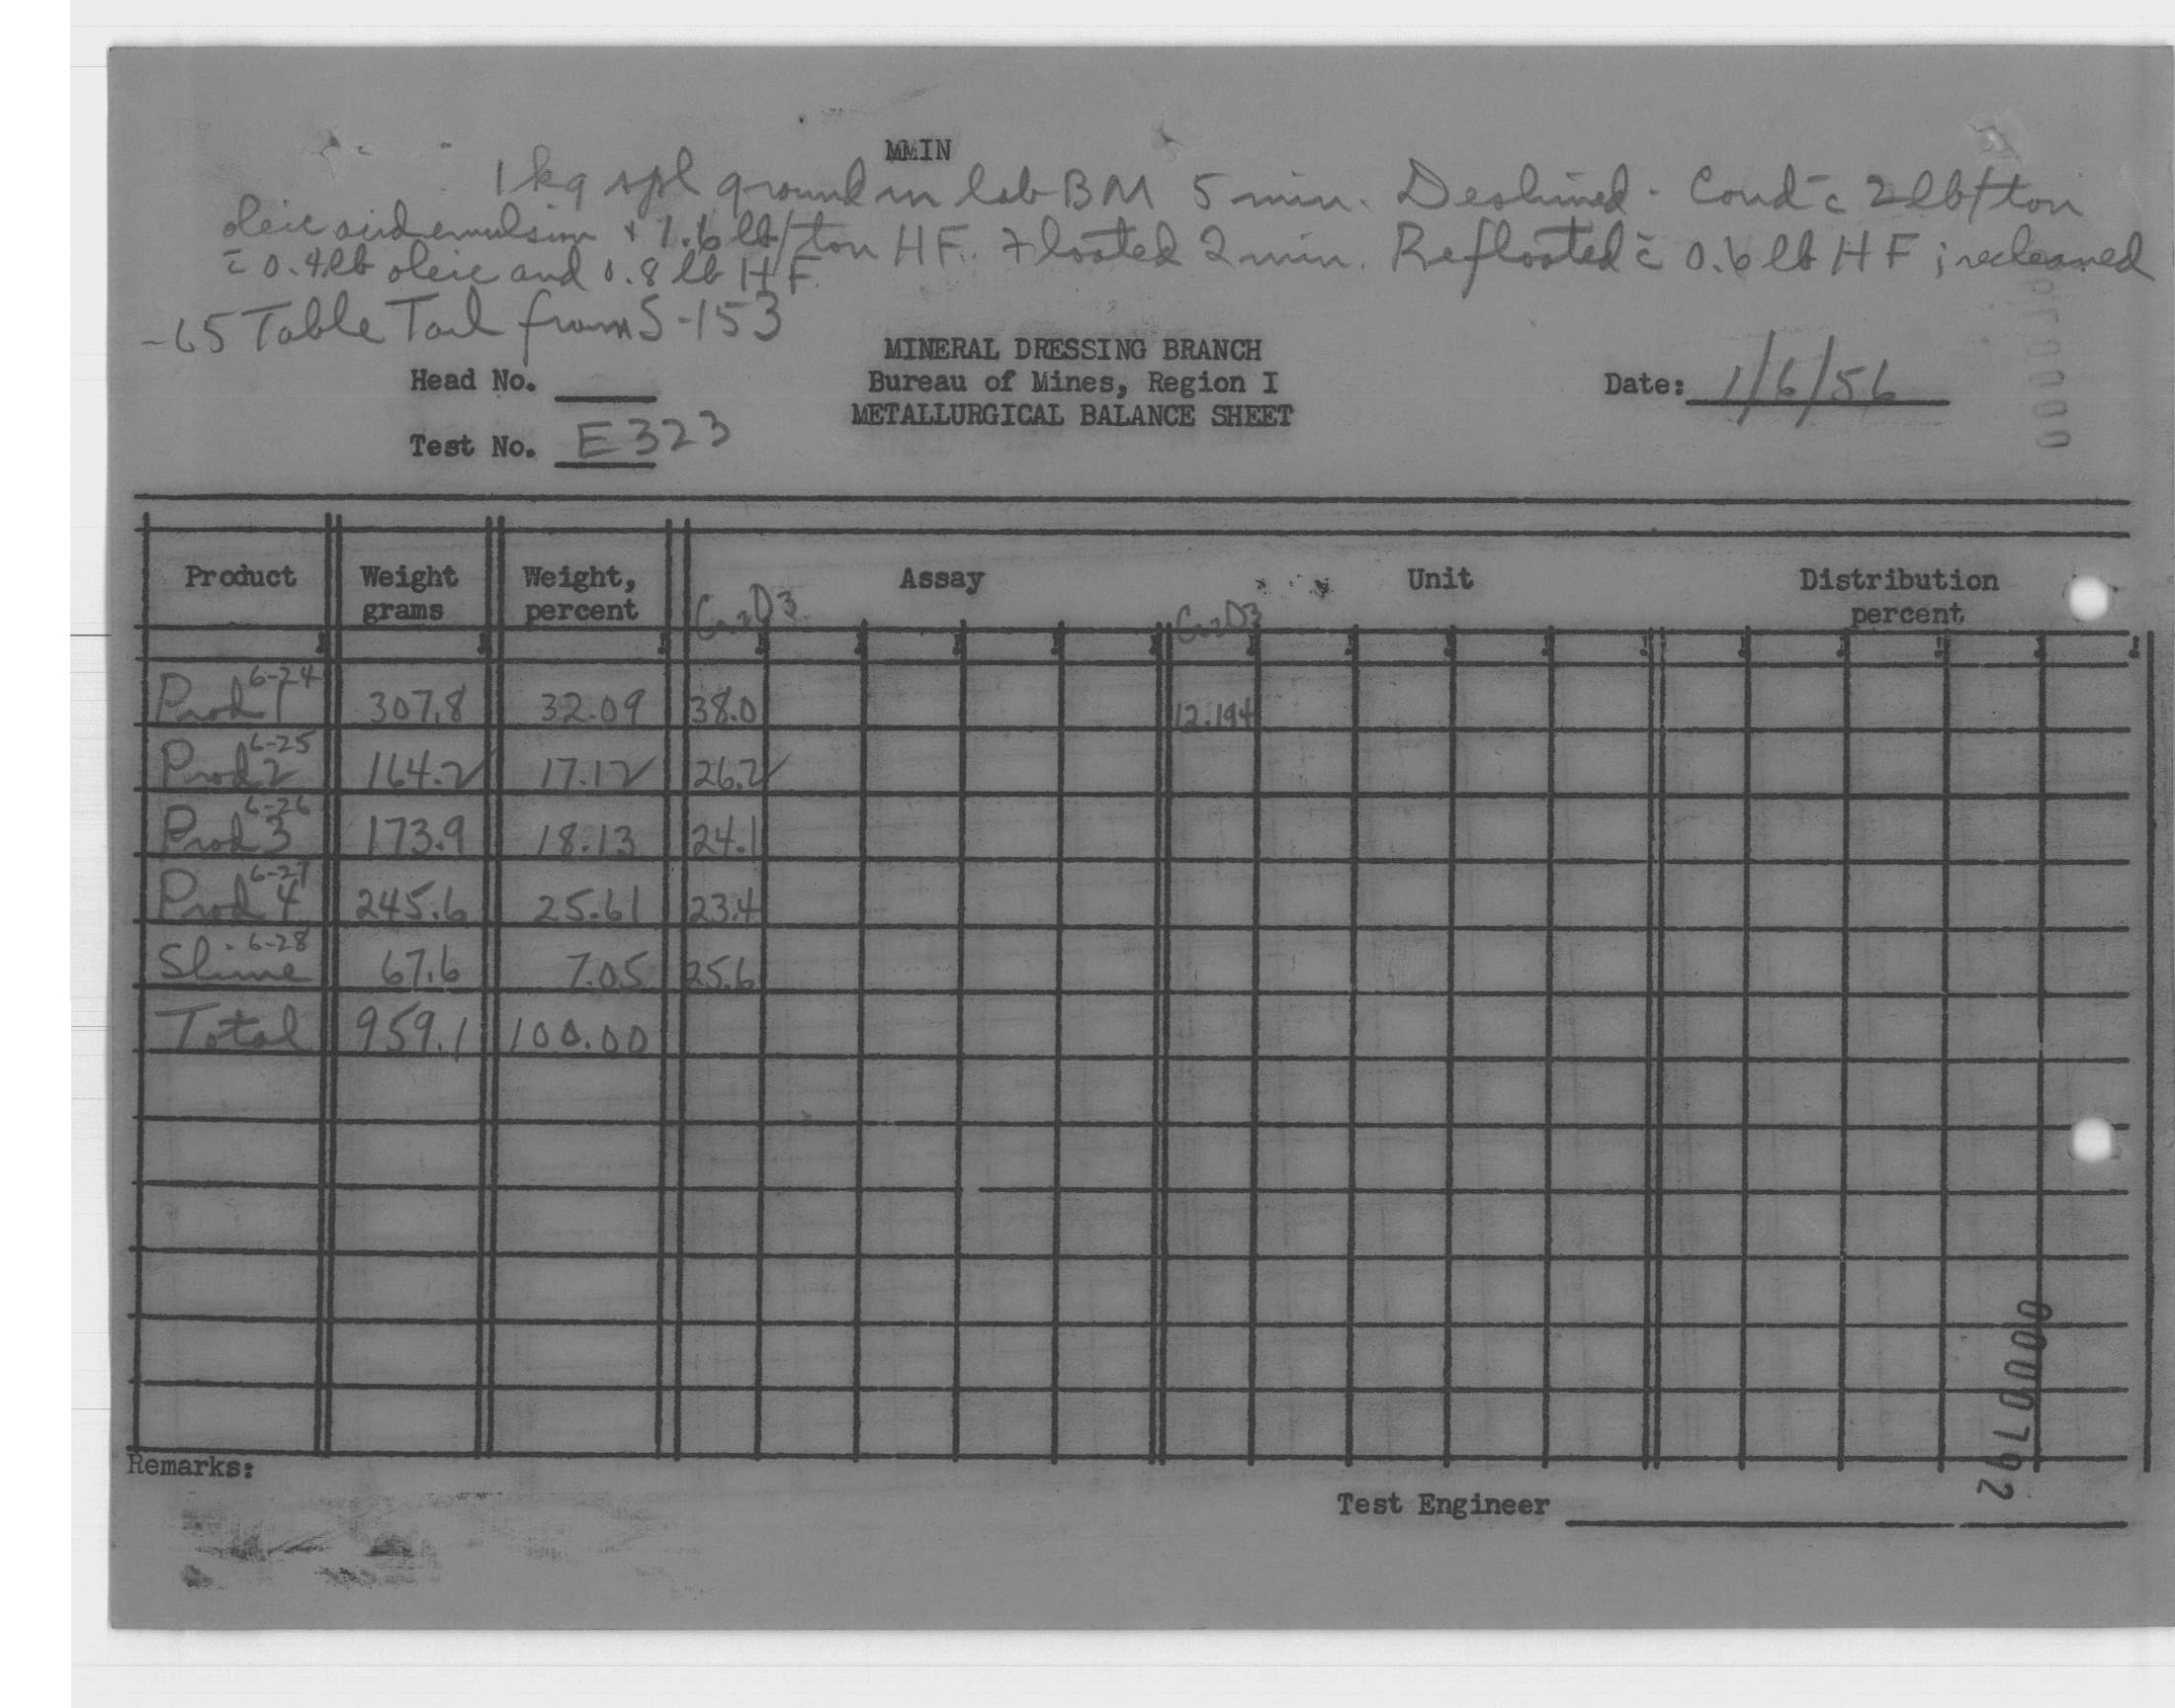 MMIN
1 kg spl ground in lab BM 5 min. Deslimed - Cond c̄ 2 lb/ton
oleic acid emulsion + 1.6 lb/ton HF. Floated 2 min. Refloated c̄ 0.6 lb HF; recleaned
c̄ 0.4 lb oleic and 0.8 lb HF.
-65 Table Tail from S-153
MINERAL DRESSING BRANCH
Head No. Bureau of Mines, Region I Date: 1/6/56
METALLURGICAL BALANCE SHEET
Test No. E323
Product Weight grams Weight, percent Assay Unit Distribution percent
Cr2O3 Cr2O3
Prod 1 6-24 307.8 32.09 38.0 12.194
Prod 2 6-25 164.2 17.12 26.2
Prod 3 6-26 173.9 18.13 24.1
Prod 4 6-27 245.6 25.61 23.4
Slime 6-28 67.6 7.05 25.6
Total 959.1 100.00
Remarks:
Test Engineer
0000792